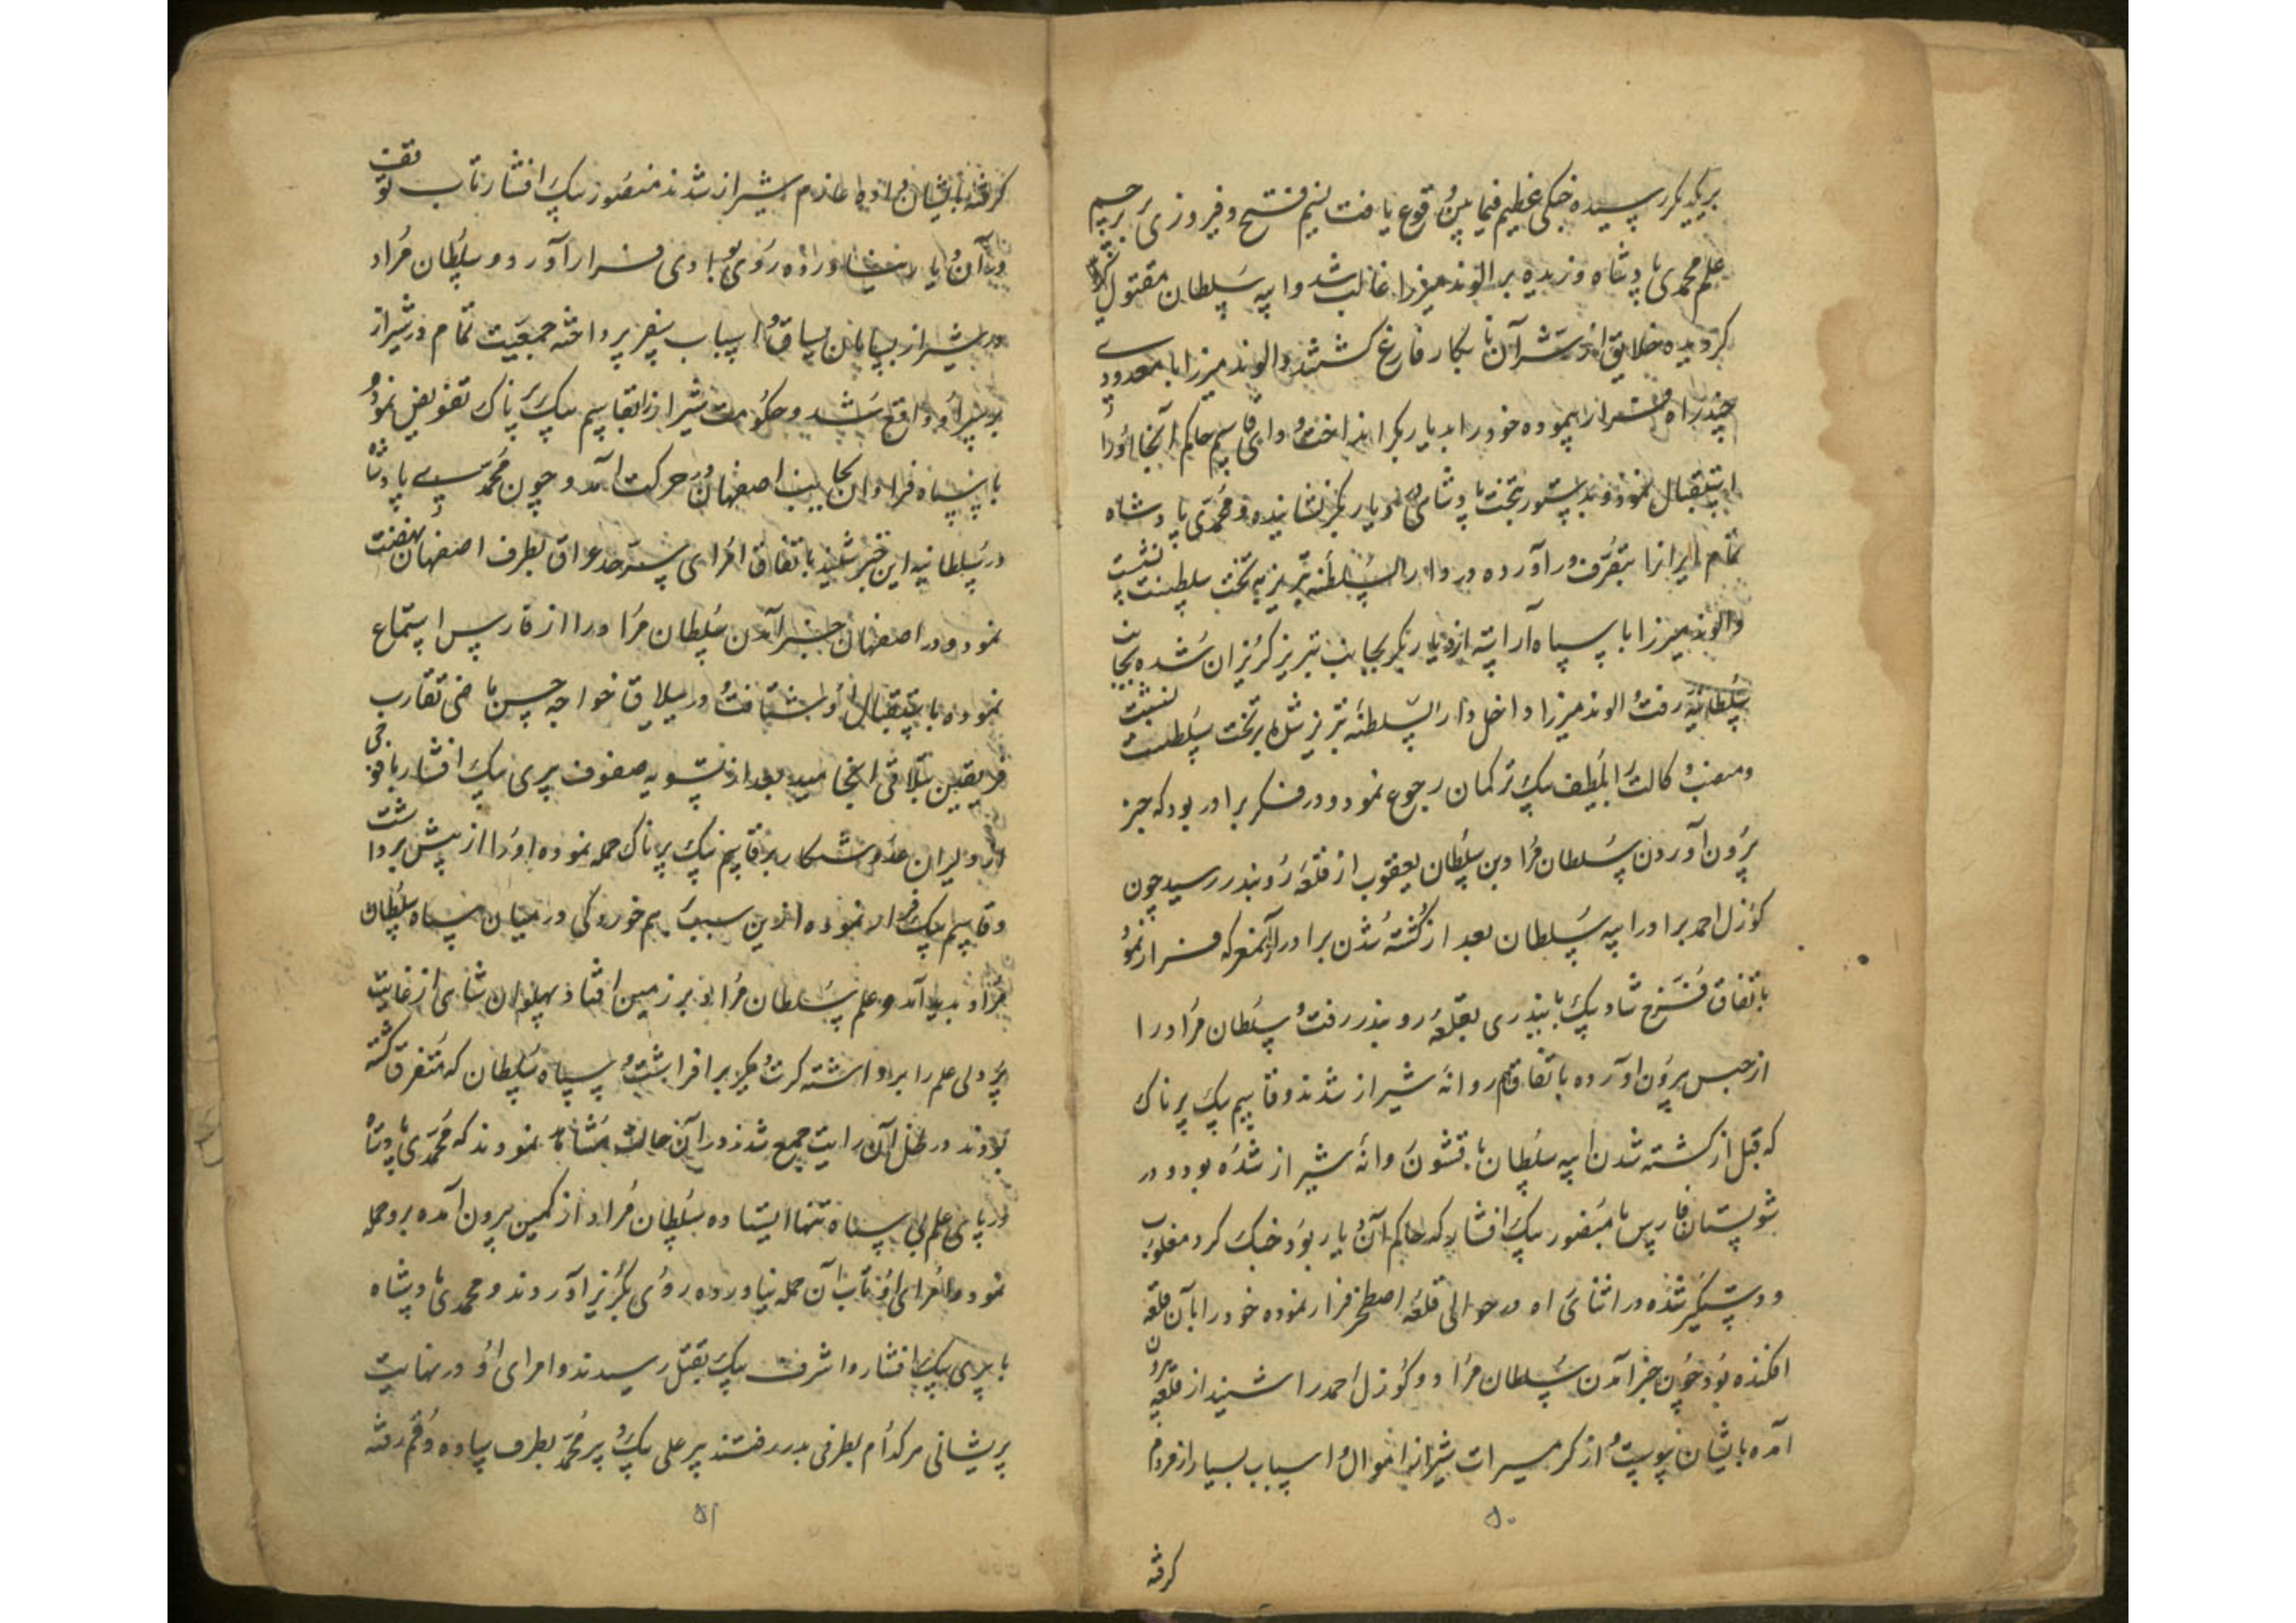 بریکدیکر رسیده جنکی عظیم فیمابین وقوع یافت نسیم فتح و فیروزی بر پرچم
علم محمدی پادشاه وزیده بر الوند میرزا غالب شد و ایبه سلطان مقتول
کردیده خلایق از شر آن نابکار فارغ کشتند و الوند میرزا با معدودی
چند راه فرار پیموده خود را بدیاربکر انداخت و قاسم حاکم آنجا او را
استقبال نمود و بدستور بتخت پادشاهی دیاربکر نشانیده و محمدی پادشاه
تمام ایرانرا بتصرف در آورده در دار السلطنه تبریز به تخت سلطنت نشست
و الوند میرزا با سپاه آراسته از دیاربکر بجانب تبریز کریزان شده بجانب
سلطانیه رفت و الوند میرزا داخل دار السلطنه تبریز شده بر تخت سلطنت نشست
و منصب وکالت بلطیف بیک ترکمان رجوع نمود و در فکر برادر بود که خبر
برون آوردن سلطان مراد بن سلطان یعقوب از قلعه روئندر رسید چون
کوزل احمد برادر ایبه سلطان بعد از کشته شدن برادر از آنمعرکه فرار نمود
باتفاق فرخ شاد بیک بایندری بقلعه روئندر رفت و سلطان مراد را
از حبس برون آورده باتفاق هم روانه شیراز شدند و قاسم بیک پرناک
که قبل از کشته شدن ایبه سلطان با قشون روانه شیراز شده بود و در
شولستان فارس با منصور بیک افشار که حاکم آن دیار بود جنک کرد مغلوب
و دستکیر شده در اثنای راه در حوالی قلعه اصطخر فرار نموده خود را بآن قلعه
افکنده بود چون خبر آمدن سلطان مراد و کوزل احمد را شنید از قلعه برون
آمده بایشان پیوست و از کرمسیرات شیراز اموال و اسباب بسیار از مردم
۵۰
کرفته
کرفته بایشان داده عازم شیراز شدند منصور بیک افشار تاب توقف
در آن دیار نیاورده روی بوادی فرار آورد و سلطان مراد
در شیراز بسامان یساق و اسباب سفر پرداخته جمعیت تمام در شیراز
بر سر او واقع شد و حکومت شیراز را بقاسم بیک پرناک تفویض نمود و
با سپاه فراوان بجانب اصفهان در حرکت آمد و چون محمدی پادشاه
در سلطانیه این خبر شنید باتفاق امرای سرحد عراق بطرف اصفهان نهضت
نمود و در اصفهان خبر آمدن سلطان مراد را از فارس استماع
نموده باستقبال او شتافت و در ییلاق خواجه حسن ماضی تقارب
فریقین بتلاقی انجامید بعد از تسویه صفوف پری بیک افشار با فوجی
از دلیران عدو شکار بر قاسم بیک پرناک حمله نموده او را از پیش برداشت
و قاسم بیک فرار نموده ازین سبب بهم خوردکی در میان سپاه سلطان
مراد پدید آمد و علم سلطان مراد بر زمین افتاد و پهلوان شاهی از غایت
پردلی علم را برداشته کرت دیکر برافراشت و سپاه سلطان که متفرق کشته
بودند در ظل آن رایت جمع شدند در آن حالت مشاهده نمودند که محمدی پادشاه
در پای علم بی سپاه تنها ایستاده سلطان مراد از کمین برون آمده برو حمله
نمود و امرای او تاب آن حمله نیاورده روی بکریز آوردند و محمدی پادشاه
با پری بیک افشار و اشرف بیک بقتل رسیدند و امرای او در نهایت
پریشانی هر کدام بطرفی بدر رفتند پیر علی بیک و پیر محمد بطرف ساوه و قم رفته
۵۱